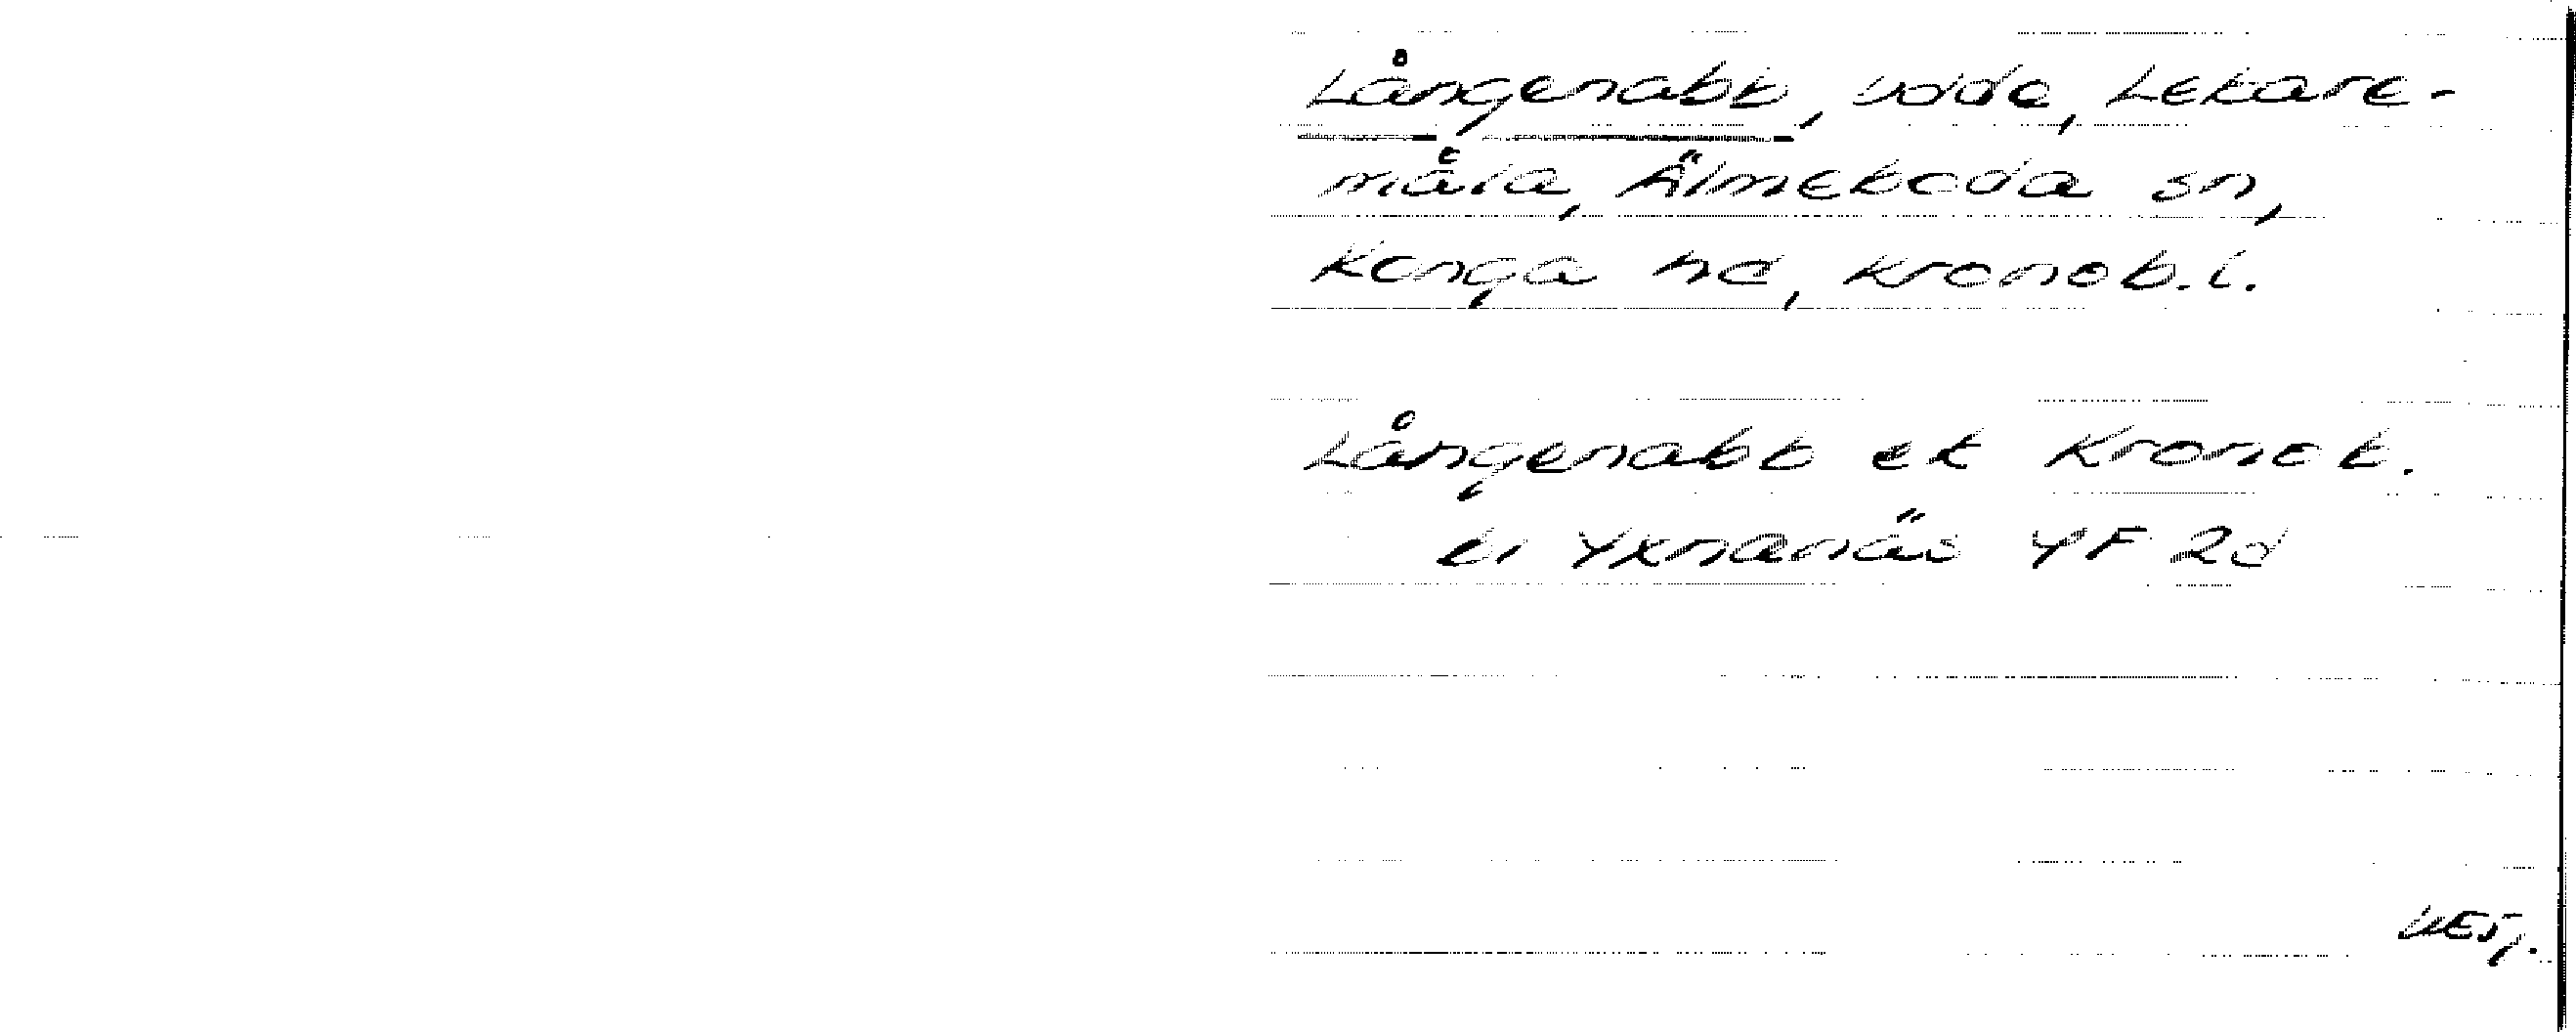 Långenabb, udde, Lekare-
måla, Älmeboda sn,
Konga hd, Kronob.l.
Långenabb ek Kronob.
bl Yxnanäs 4F 2d